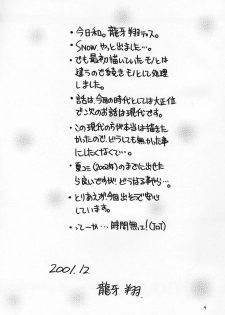 ・今日和。龍牙 翔デス。
・Snow やっと出ました…。
・でも最初描いていたモノとは
違うので続きモノとして処理
しました。
・話は、今回の時代としては大正位
で次のお話は現代です。
・この現代の方が本当は描きた
かったので、どうしても無かった事
にしたくなくて…。
・夏コミ(2002年)のまでに出せた
ら良いですが どうなる事やら…。
・とりあえず今回出せて安心
しています。
・ってーか…時間無ェ!(ToT)
2001.12
龍牙 翔